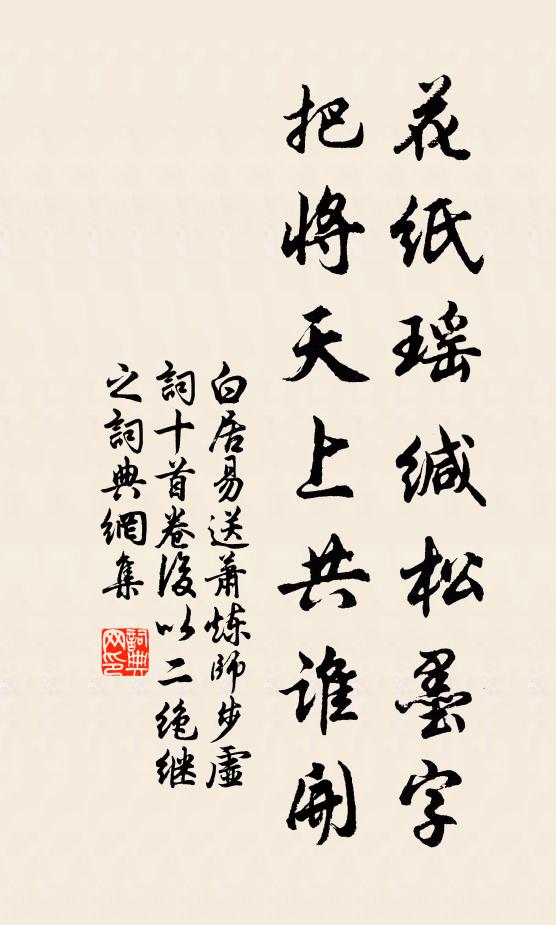 花纸瑶缄松墨字
把将天上共谁开
白居易送萧炼师步虚
詞十首卷後以二绝继
之詞典網集
詞典网印